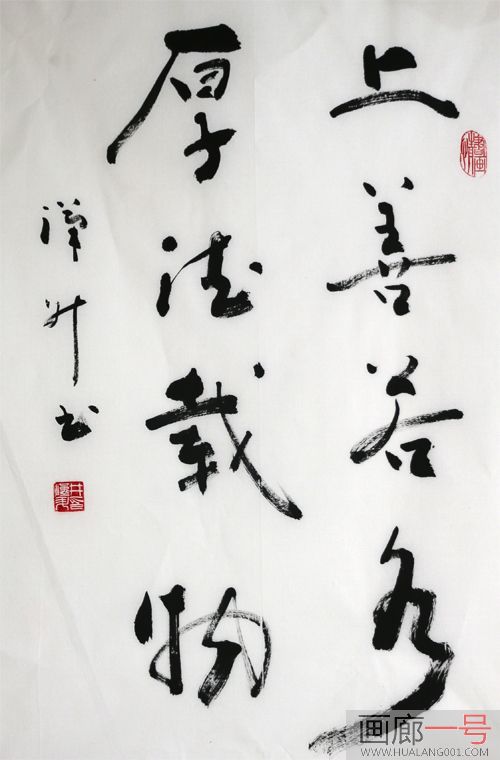 上善若水
厚德載物
书
画廊一号
WWW.HUALANG001.COM